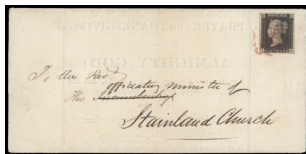 PRAYER & THANKSGIVING
ALMIGHTY GOD;
POSTAGE
To the Revd
officiating minister of
The
Stainland Church